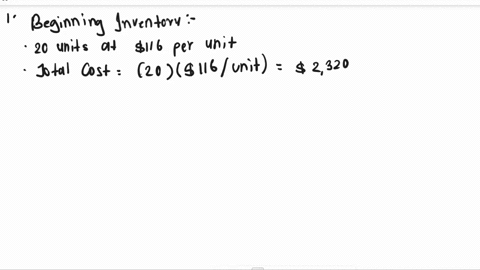 1. Beginning Inventory :-
· 20 units at $116 per unit
· Total Cost = (20)($116/unit) = $2,320